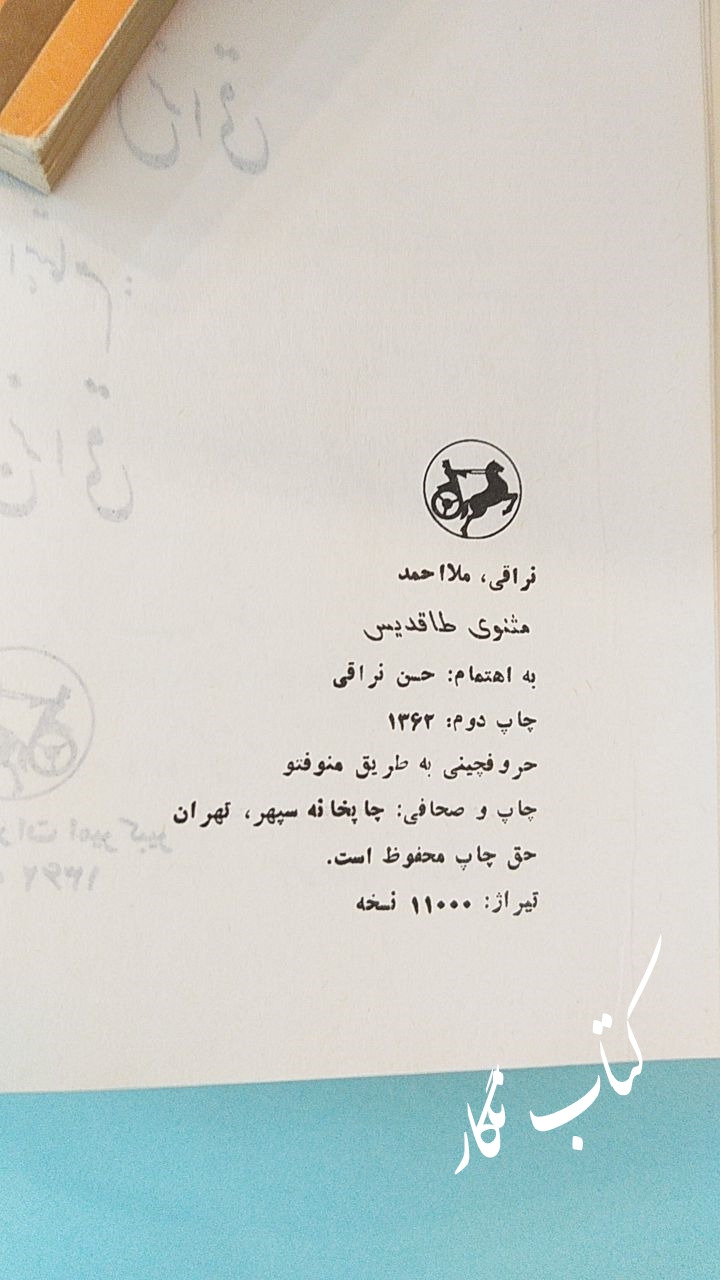 نراقی، ملااحمد
مثنوی طاقدیس
به اهتمام: حسن نراقی
چاپ دوم: ۱۳۶۲
حروفچینی به طریق منوفتو
چاپ و صحافی: چاپخانه سپهر، تهران
حق چاپ محفوظ است.
تیراژ: ۱۱۰۰۰ نسخه
کتاب نگار